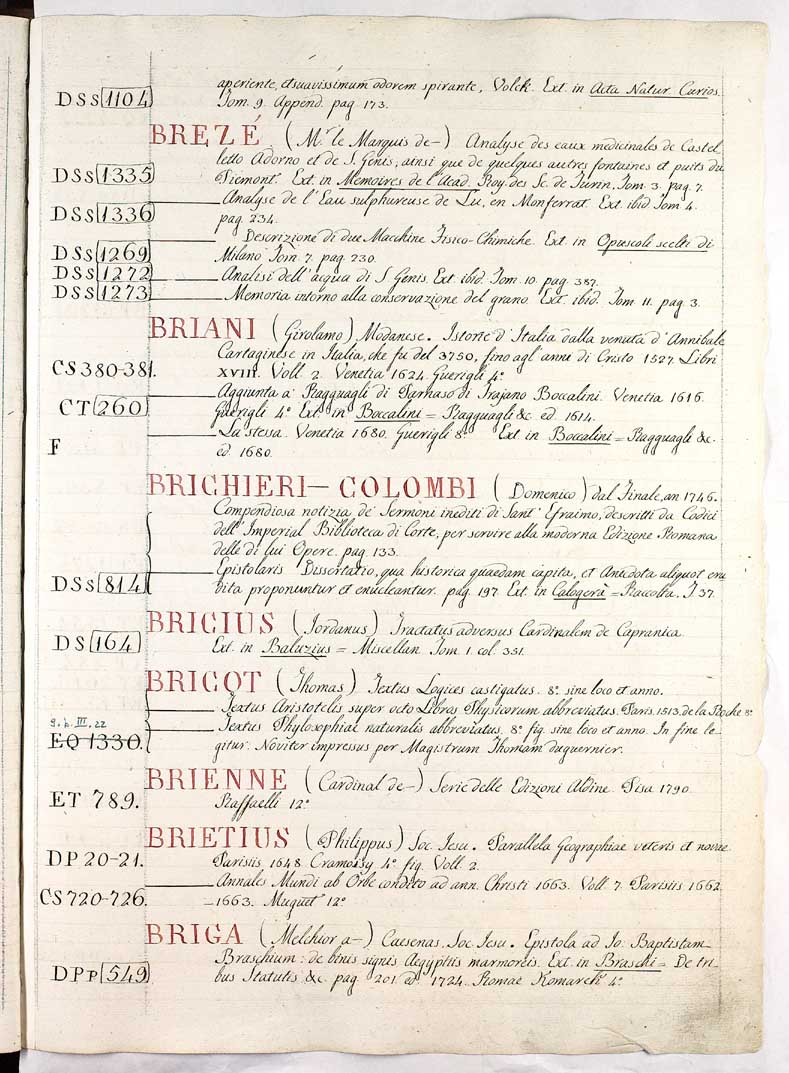 aperiente, et suavissimum odorem spirante, Volck. Ext. in Acta Natur Curios.
DSs 1104 Tom. 9. Append. pag. 173.
BREZÉ (Mr. le Marquis de—) Analyse des eaux medicinales de Castel
letto Adorno et de S. Genis, ainsi que de quelques autres fontaines et puits du
DSs 1335 Piemont. Ext. in Memoires de l'Acad Roy. des Sc. de Turin, Tom. 3. pag. 7.
Analyse de l'Eau sulphureuse de Lu, en Monferrat. Ext. ibid Tom 4.
DSs 1336 pag. 234.
Descrizione di due Macchine Fisico-Chimiche. Ext. in Opuscoli scelti di
DSs 1269 Milano Tom. 7. pag. 230.
DSs 1272 Analisi dell'acqua di S Genis. Ext. ibid. Tom. 10. pag. 387.
DSs 1273 Memoria intorno alla conservazione del grano. Ext. ibid. Tom 11. pag 3.
BRIANI (Girolamo) Modanese. Istorie d'Italia dalla venuta d'Annibale
Cartaginese in Italia, che fu del 3750, fino agl'anni di Cristo 1527. Libri
CS 380-381. XVIII. Voll. 2. Venetia 1624 Guerigli 4°
Aggiunta a' Ragguagli di Parnaso di Trajano Boccalini. Venetia 1616.
CT 260 Guerigli 4° Ext. in Boccalini = Ragguagli &c. ed. 1614.
La stessa. Venetia 1680. Guerigli 8° Ext in Boccalini = Ragguagli &c.
F ed 1680.
BRICHIERI-COLOMBI (Domenico) dal Finale, an 1746.
Compendiosa notizia de' Sermoni inediti di Sant' Efraimo, descritti da Codici
dell'Imperial Biblioteca di Corte, per servire alla moderna Edizione Romana
delle di lui Opere. pag. 133.
Epistolaris Dissertatio, qua historica quaedam capita, et Anecdota aliquot eru
DSs 814 bita proponuntur et enucleantur. pag. 197. Ext. in Calogerà = Raccolta. T 37.
BRICIUS (Jordanus) Tractatus adversus Cardinalem de Capranica
DS 164 Ext. in Baluzius = Miscellan Tom. 1. col. 351.
BRICOT (Thomas) Textus Logices castigatus. 8°. sine loco et anno.
Textus Aristotelis super octo Libros Physicorum abbreviatus. Paris. 1513. de la Roche 8°
9. b. III. 22 Textus Phylosophiae naturalis abbreviatus. 8° fig. sine loco et anno. In fine le-
EQ 1330. gitur. Noviter impressus per Magistrum Thomam duguernier.
BRIENNE (Cardinal de—) Serie delle Edizioni Aldine. Pisa 1790.
ET 789. Raffaelli 12°
BRIETIUS (Philippus) Soc. Iesu. Parallela Geographiae veteris et novae
DP 20-21. Parisiis 1648. Cramoisy 4° fig. Voll. 2.
Annales Mundi ab Orbe condito ad ann. Christi 1663. Voll. 7. Parisiis 1662
CS 720-726. -1663. Muguet 12°
BRIGA (Melchior a—) Caesenas. Soc. Iesu. Epistola ad Io: Baptistam
Braschium: de binis signis Aegyptiis marmoreis. Ext. in Braschi = De tri
DPp 549 bus Statutis &c. pag. 201. ed. 1724. Romae Komarek 4°